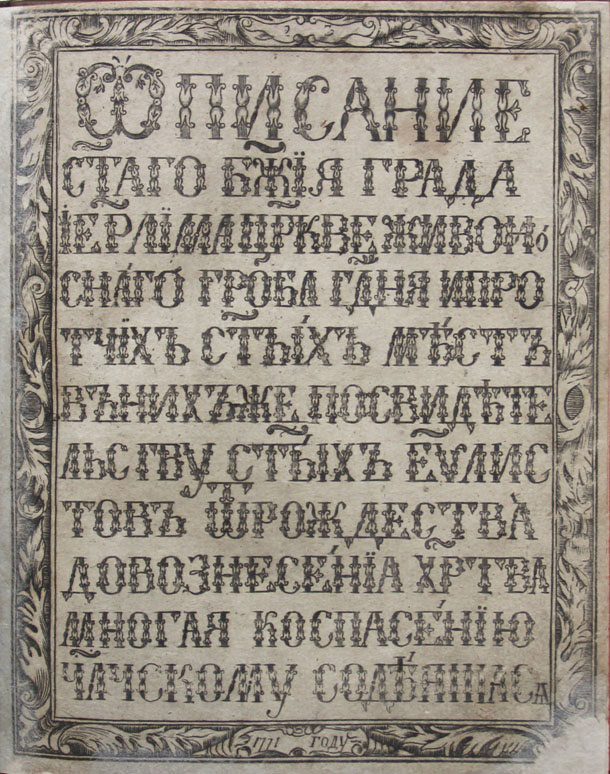 ѠПИСАНИЕ
СТ҃АГО БЖ҃ЇЯ ГРАДА
ІЕРЛ҃ЇМА ЦР҃КВЕ ЖИВОНО
СНАГО ГРОБА ГД҃НЯ ИПРО
ТЧЇХЪ СТ҃ЫХЪ МѢСТЪ
ВЪНИХЪЖЕ ПОСВИДѢТЕ
ЛЬСТВУ СТ҃ЫХЪ ЕѴ҃ЛИС
ТОВЪ ѾРОЖДЕСТВА
ДОВОЗНЕСЕНЇА ХР҃ТВА
МНОГАЯ КОСПАСЕНЇЮ
ЧЛ҃ЧСКОМУ СОДѢЯШАСѦ
1771 ГОДУ